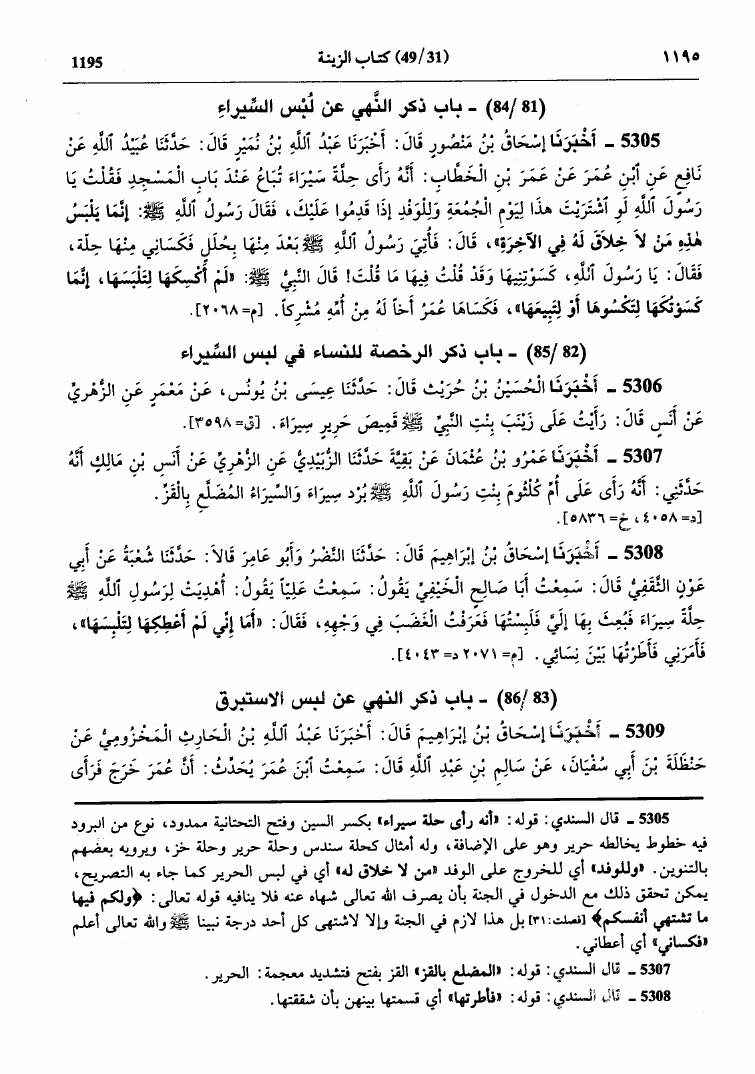 ١١٩٥ (49/31) كتاب الزينة 1195
(84/81) - باب ذكر النَّهي عن لُبْس السِّيراءِ
5305 - أَخْبَرَنَا إِسْحَاقُ بْنُ مَنْصُورٍ قَالَ: أَخْبَرَنَا عَبْدُ ٱللَّهِ بْنُ نُمَيْرٍ قَالَ: حَدَّثَنَا عُبَيْدُ ٱللَّهِ عَنْ
نَافِعٍ عَنِ ٱبْنِ عُمَرَ عَنْ عُمَرَ بْنِ الْخَطَّابِ: أَنَّهُ رَأَى حِلَّةَ سِيَرَاءَ تُبَاعُ عَنْدَ بَابِ الْمَسْجِدِ فَقُلْتُ يَا
رَسُولَ ٱللَّهِ لَوِ ٱشْتَرَيْتَ هذَا لِيَوْمِ الْجُمُعَةِ وَلِلْوَفْدِ إِذَا قَدِمُوا عَلَيْكَ، فَقَالَ رَسُولُ ٱللَّهِ ﷺ: إِنَّمَا يَلْبَسُ
هٰذِهِ مَنْ لاَ خَلاَقَ لَهُ فِي الآخِرَةِ»، قَالَ: فَأُتِيَ رَسُولُ ٱللَّهِ ﷺ بَعْدَ مِنْهَا بِحُلَلٍ فَكَسَانِي مِنْهَا حِلَّة،
فَقَالَ: يَا رَسُولَ ٱللَّهِ، كَسَوْتِنِيهَا وَقَدْ قُلْتُ فِيهَا مَا قُلْتَ! قَالَ النَّبِيُّ ﷺ: «لَمْ أَكْسِكَهَا لِتَلْبَسَهَا، إِنَّمَا
كَسَوْتُكَهَا لِتَكْسُوهَا أَوْ لِتَبِيعَهَا»، فَكَسَاهَا عُمَرُ أَخاً لَهُ مِنْ أُمِّهِ مُشْرِكاً. [م=٢٠٦٨].
(85/82) - باب ذكر الرخصة للنساء في لبس السِّيراء
5306 - أَخْبَرَنَا الْحُسَيْنُ بْنُ حُرَيْثٍ قَالَ: حَدَّثَنَا عِيسَى بْنُ يُونُسَ، عَنْ مَعْمَرٍ عَنِ الزُّهْرِيِّ
عَنْ أَنَسٍ قَالَ: رَأَيْتُ عَلَى زَيْنَبَ بِنْتِ النَّبِيِّ ﷺ قَمِيصَ حَرِيرٍ سِيَرَاءَ. [ق=٣٥٩٨].
5307 - أَخْبَرَنَا عَمْرُو بْنُ عُثْمَانَ عَنْ بَقِيَّةَ حَدَّثَنَا الزُّبَيْدِيُّ عَنِ الزُّهْرِيِّ عَنْ أَنَسِ بْنِ مَالِكٍ أَنَّهُ
حَدَّثَنِي: أَنَّهُ رَأَى عَلَى أُمِّ كُلْثُومَ بِنْتِ رَسُولِ ٱللَّهِ ﷺ بُرْدَ سِيَرَاءَ وَالسِّيَرَاءُ المُضَلَّعُ بِالْقَزِّ.
[د=٤٠٥٨، خ=٥٨٣٦].
5308 - أَخْبَرَنَا إِسْحَاقُ بْنُ إِبْرَاهِيمَ قَالَ: حَدَّثَنَا النَّضْرُ وَأَبُو عَامِرَ قَالاَ: حَدَّثَنَا شُعْبَةُ عَنْ أَبِي
عَوْنٍ الثَّقَفِيُّ قَالَ: سَمِعْتُ أَبَا صَالِحٍ الْحَنَفِيِّ يَقُولُ: سَمِعْتُ عَلِيّاً يَقُولُ: أُهْدِيَتْ لِرَسُولِ ٱللَّهِ ﷺ
حِلَّةُ سِيَرَاءَ فَبُعِثَ بِهَا إِلَيَّ فَلَبِسْتُهَا فَعَرَفْتُ الْغَضَبَ فِي وَجْهِهِ، فَقَالَ: «أَمَا إِنِّي لَمْ أَعْطِكِهَا لِتَلْبِسَهَا»،
فَأَمَرَنِي فَأَطَرْتُهَا بَيْنَ نِسَائِي. [م=٢٠٧١ د=٤٠٤٣].
(86/83) - باب ذكر النهي عن لبس الاستبرق
5309 - أَخْبَرَنَا إِسْحَاقُ بْنُ إِبْرَاهِيمَ قَالَ: أَخْبَرَنَا عَبْدُ ٱللَّهِ بْنُ الْحَارِثِ الْمَخْزُومِيُّ عَنْ
حَنْظَلَةَ بْنَ أَبِي سُفْيَانَ، عَنْ سَالِمِ بْنِ عَبْدِ ٱللَّهِ قَالَ: سَمِعْتُ ٱبْنَ عُمَرَ يُحَدِّثُ: أَنَّ عُمَرَ خَرَجَ فَرَأَى
5305 - قال السندي: قوله: «أنه رأى حلة سيراء» بكسر السين وفتح التحتانية ممدود، نوع من البرود
فيه خطوط يخالطه حرير وهو على الإضافة، وله أمثال كحلة سندس وحلة حرير وحلة خز، ويرويه بعضهم
بالتنوين. «وللوفد» أي للخروج على الوفد «من لا خلاق له» أي في لبس الحرير كما جاء به التصريح،
يمكن تحقق ذلك مع الدخول في الجنة بأن يصرف الله تعالى شهاه عنه فلا ينافيه قوله تعالى: ﴿ولكم فيها
ما تشتهي أنفسكم﴾ [فصلت:٣١] بل هذا لازم في الجنة وإلا لاشتهى كل أحد درجة نبينا ﷺ والله تعالى أعلم
«فكساني» أي أعطاني.
5307 - قال السندي: قوله: «المضلع بالقز» القز بفتح فتشديد معجمة: الحرير.
5308 - قال السندي: قوله: «فأطرتها» أي قسمتها بينهن بأن شققتها.